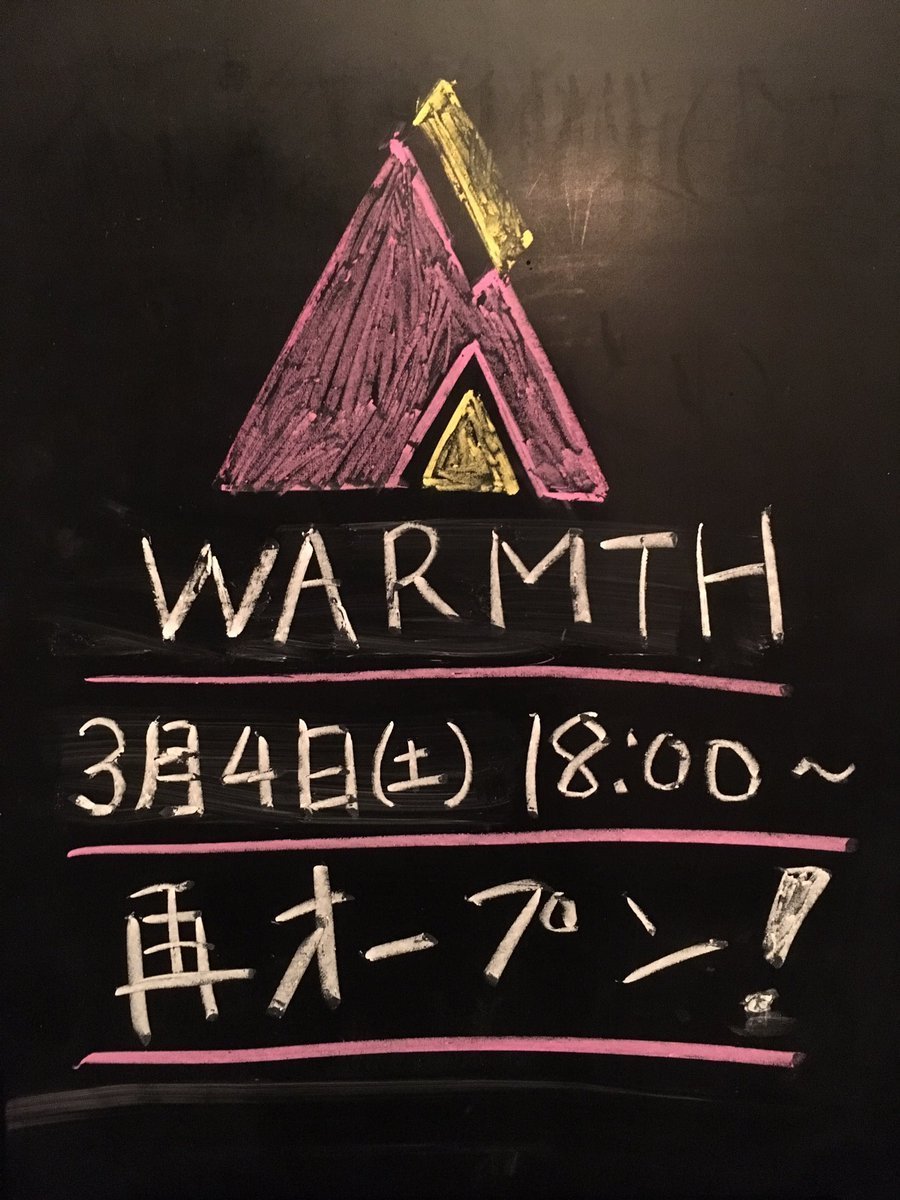 WARMTH
3月4日(土) 18:00~
再オープン!